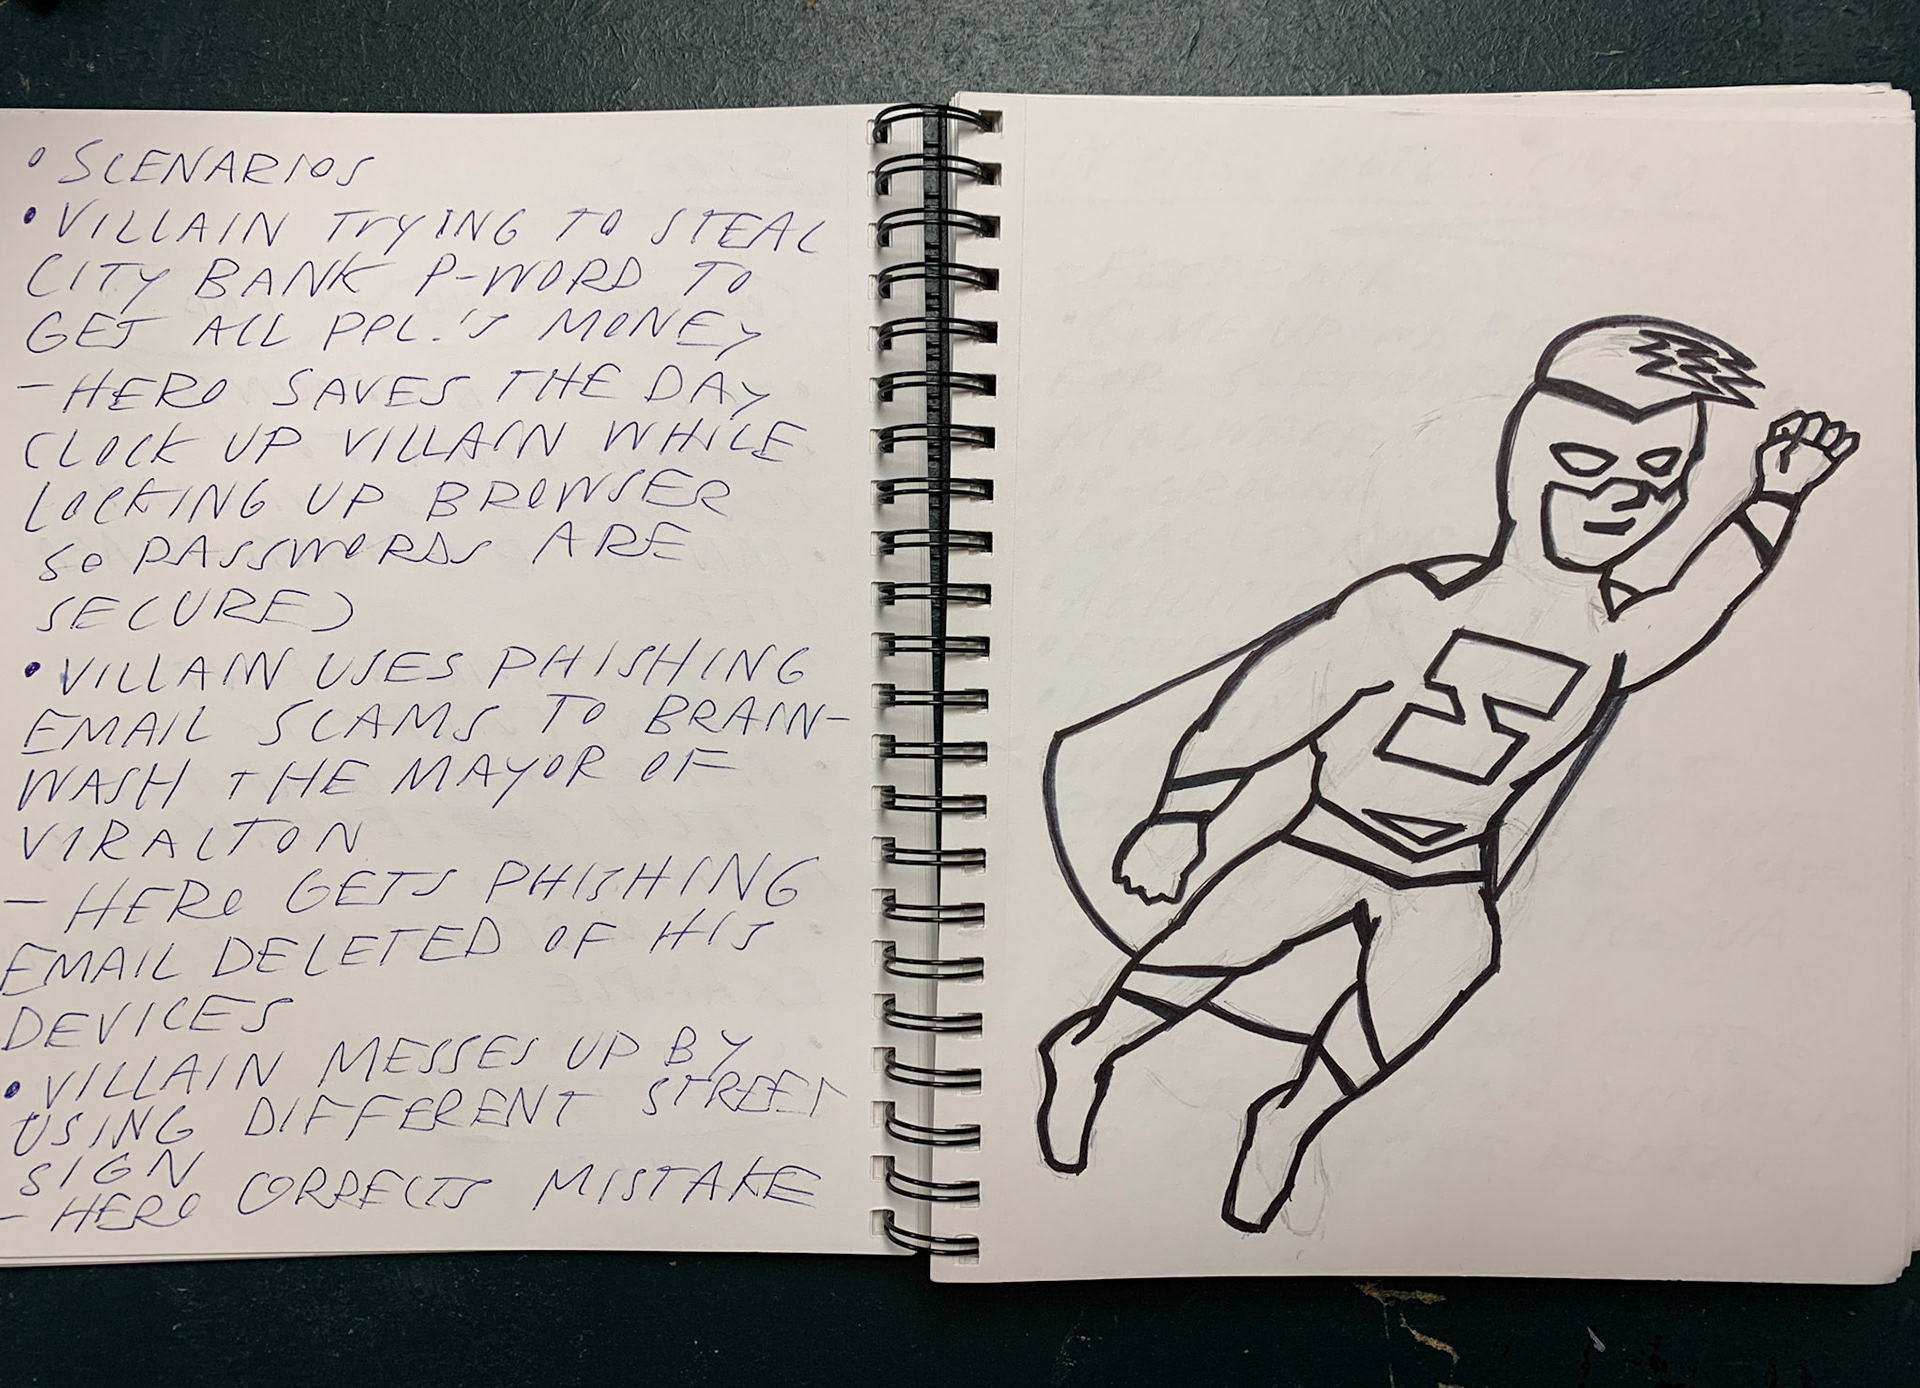 • SCENARIOS
• VILLAIN TRYING TO STEAL
CITY BANK P-WORD TO
GET ALL PPL.'S MONEY
– HERO SAVES THE DAY
CLOCK UP VILLAIN WHILE
LOCKING UP BROWSER
SO PASSWORDS ARE
SECURE)
• VILLAIN USES PHISHING
EMAIL SCAMS TO BRAIN-
WASH THE MAYOR OF
VIRALTON
– HERO GETS PHISHING
EMAIL DELETED OF HIS
DEVICES
• VILLAIN MESSES UP BY
USING DIFFERENT STREET
SIGN
– HERO CORRECTS MISTAKE
I